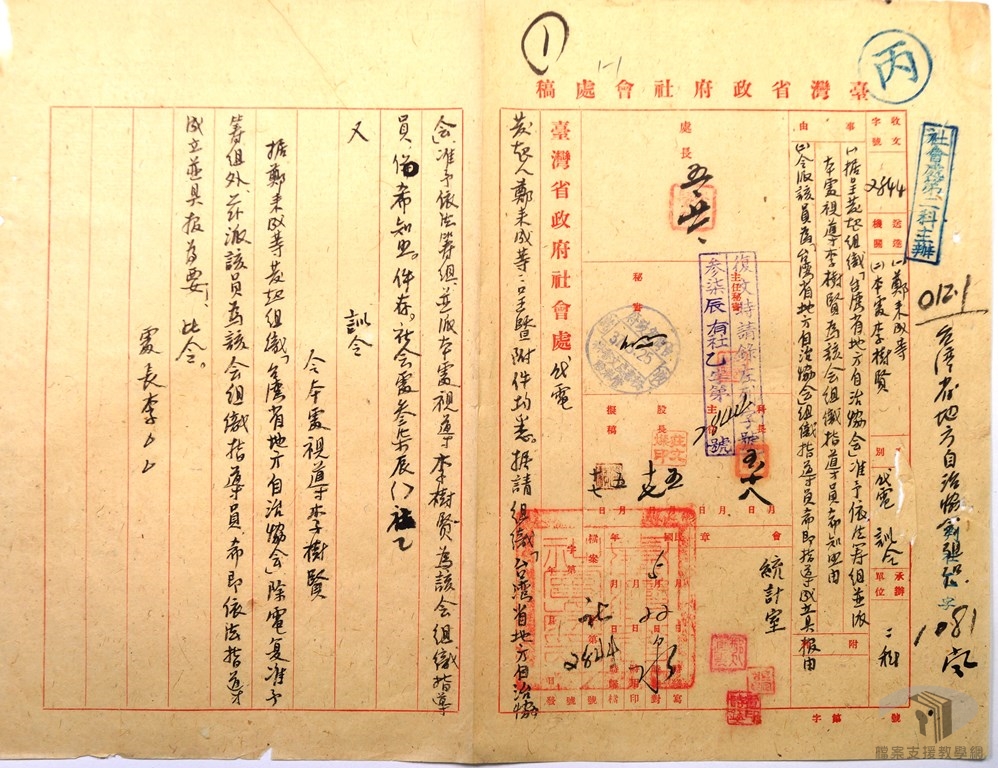 ①
1-1
丙
臺灣省政府社會處稿
社會處第二科主辦
012.1
台灣省地方自治協會組織
字
1081
收文
字號
2844
送達
機關
(一)鄭耒成等
(二)本處李樹賢
別
代電 訓令
承辦
單位
二科
事
由
(一)據呈發起組織「台灣省地方自治協會」准予依法籌組並派
本處視導李樹賢為該會組織指導員希知照由
(二)令派該員為「台灣省地方自治協會」組織指導員希即指導成立具報由
附
處長
主任秘書
秘書
科長
主任
股長
擬稿
復文時請錄左列字號
參柒辰有社乙字第
號
2844
五 十八
五 十七
五 十七
月 日
會章
統計室
民國
年 月 日
檔案
字第
社
2844
5
號
臺灣省政府社會處代電
發起人鄭耒成等:呈暨附件均悉。據請組織「台灣省地方自治協
會」准予依法籌組,並派本處視導李樹賢為該會組織指導
員,仰希知照。件存。社會處參柒辰()社乙
又 訓令
令本處視導李樹賢
據鄭耒成等發起組織「台灣省地方自治協會」除電复准予
籌組外,茲派該員為該會組織指導員,希即依法指導
成立並具报為要!此令。
處長李
字第 號
檔案支援教學網